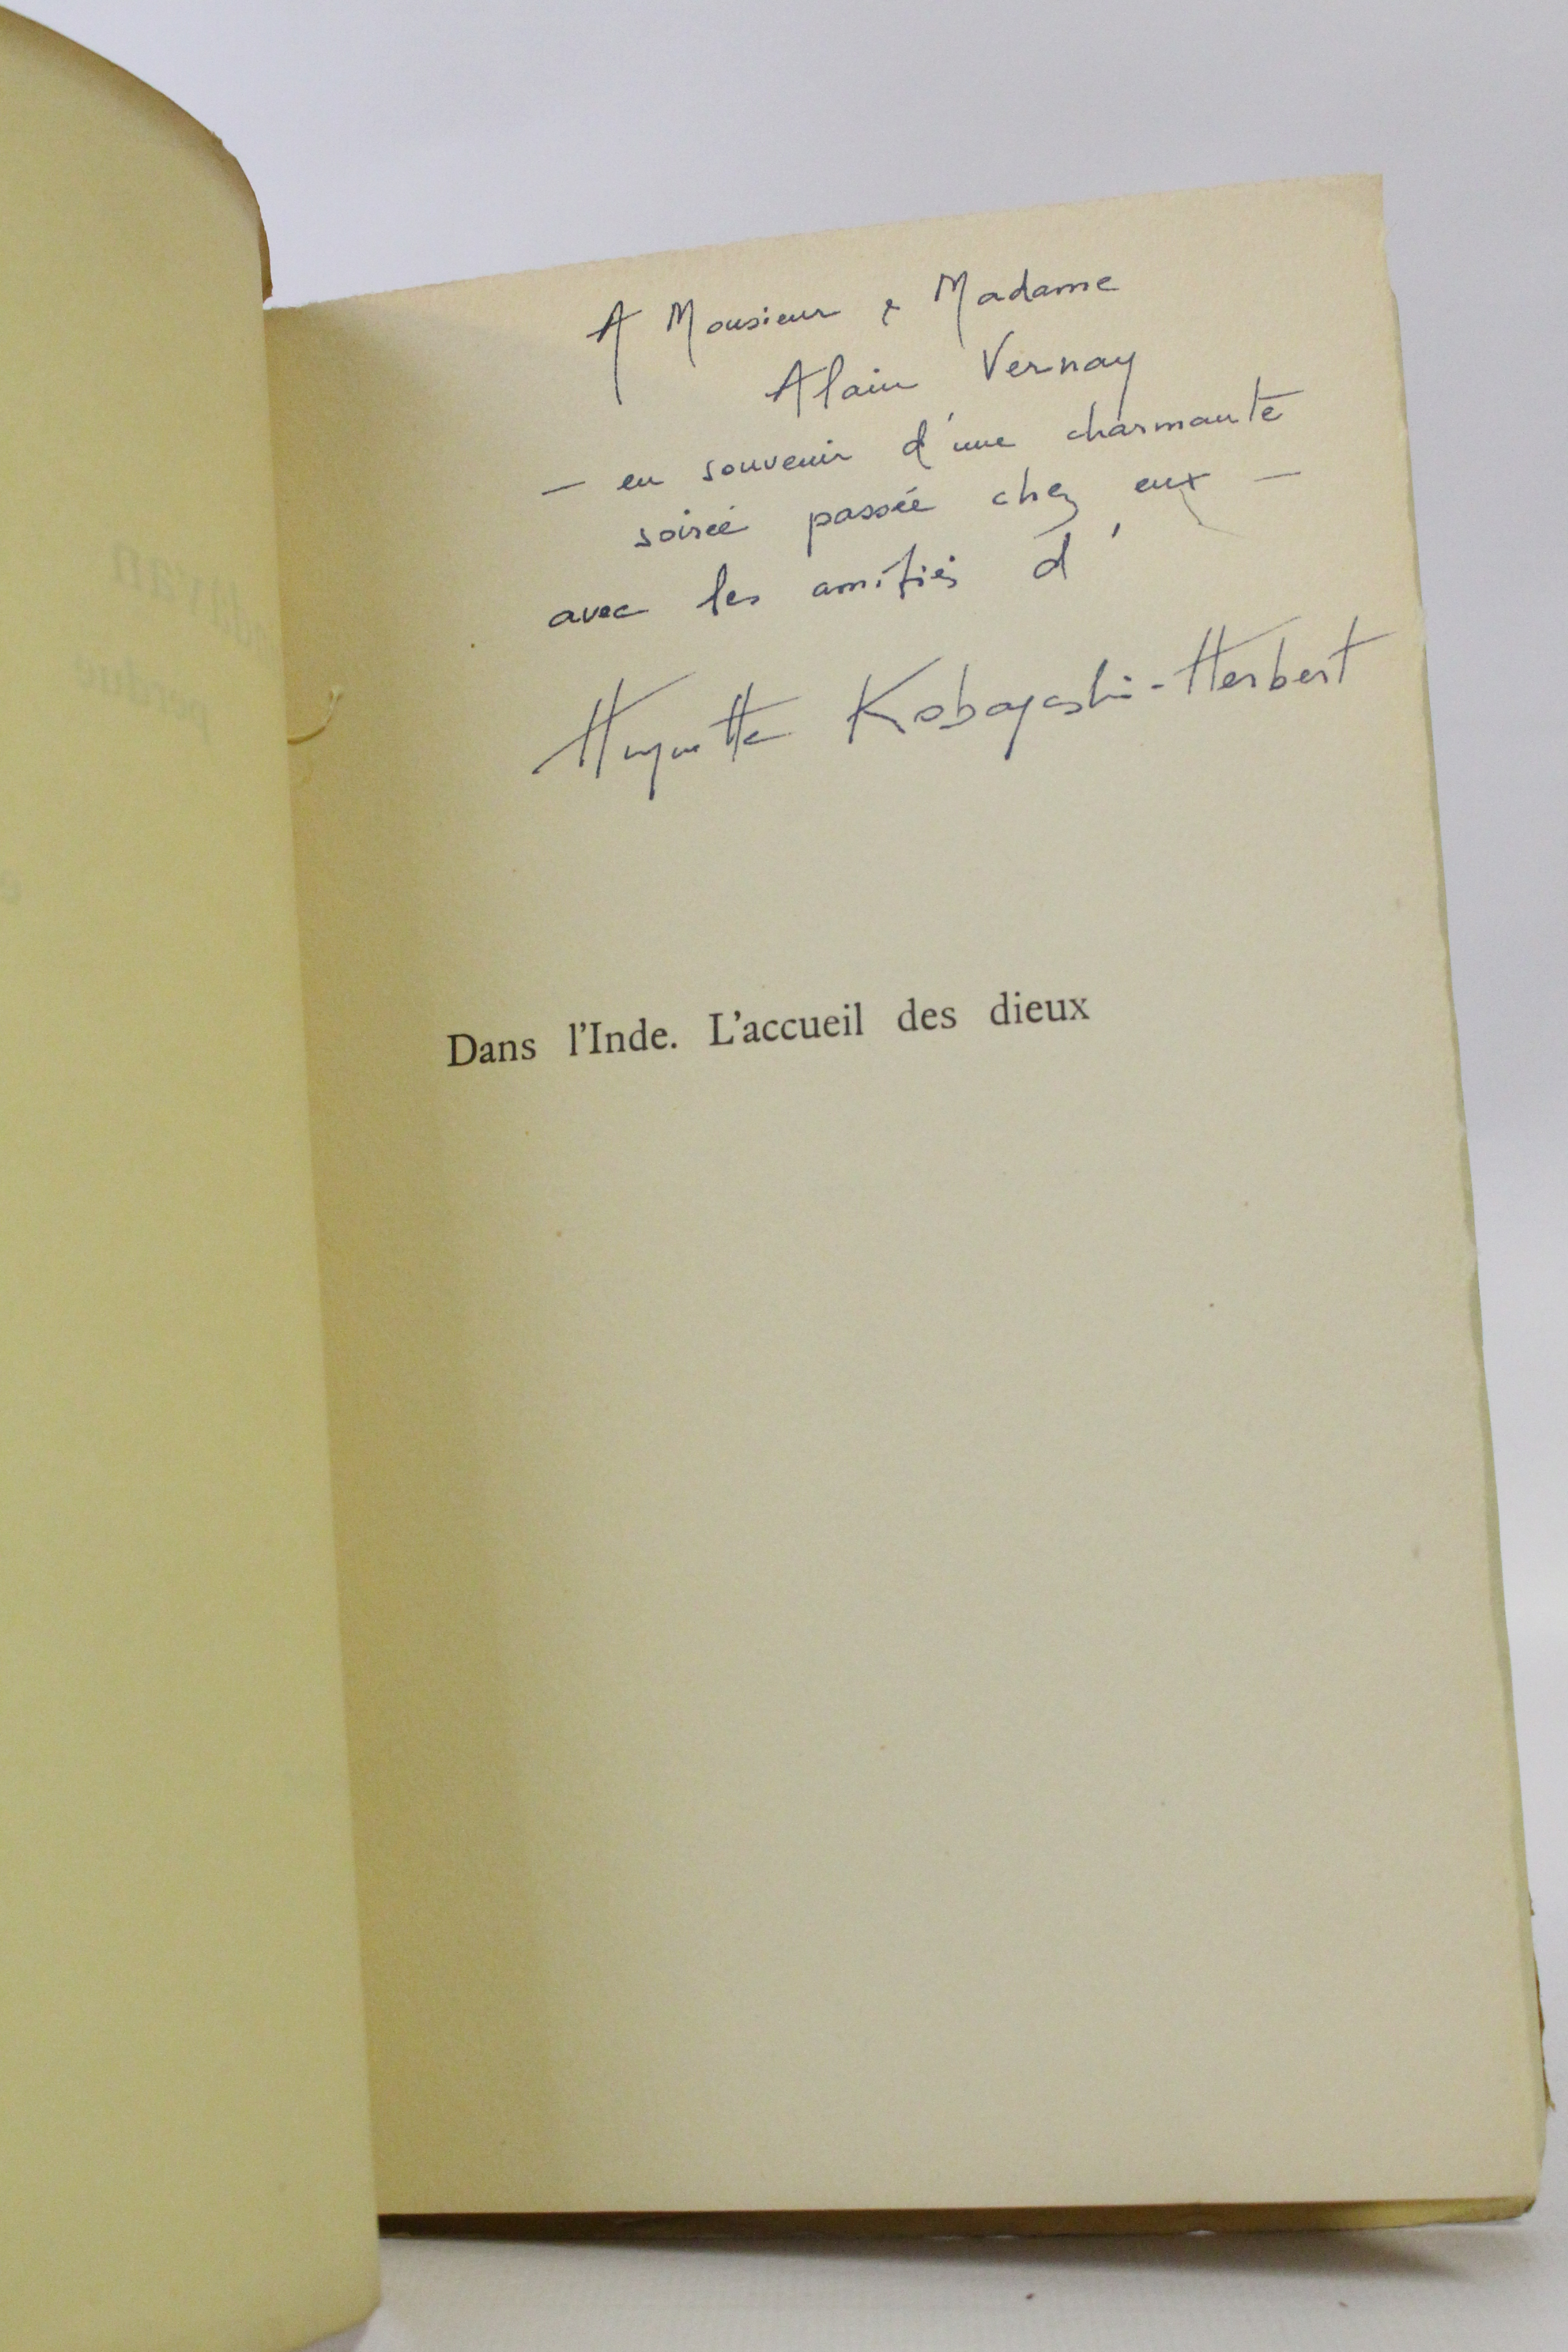 A Monsieur & Madame
Alain Vernay
— en souvenir d'une charmante
soirée passée chez eux —
avec les amitiés d'
Huguette Kobayashi-Herbert
Dans l'Inde. L'accueil des dieux
perdue